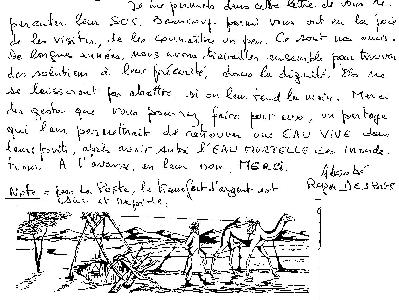 Je me permets dans cette lettre de vous ré-
percuter leur SOS. Beaucoup parmi vous ont eu la joie
de les visiter, de les connaître un peu. Ce sont nos amis.
De longues années, nous avons travaillé ensemble pour trouver
des solutions à leur précarité, dans la dignité. Ils ne
se laisseront pas abattre si on leur tend la main. Merci
du geste que vous pourrez faire pour eux, un partage
qui leur permettrait de retrouver une EAU VIVE dans
leurs puits, après avoir subi l'EAU MORTELLE des inonda-
tions. A l'avance, en leur nom, MERCI.
Note = par La Poste, le transfert d'argent est
sûr et rapide.